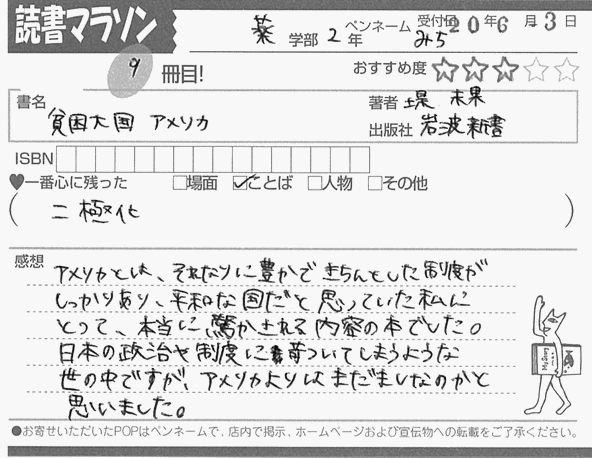 読書マラソン
薬 学部 2 年 ペンネーム みち 受付日 20年6月-3日
9 冊目! おすすめ度 ☆☆☆☆☆
書名 貧困大国 アメリカ
著者 堤 未果
出版社 岩波新書
ISBN
♥一番心に残った □場面 ☑ことば □人物 □その他
( 二極化 )
感想
アメリカとは、それなりに豊かできちんとした制度が
しっかりあり、平和な国だと思っていた私に
とって、本当に驚かされる内容の本でした。
日本の政治や制度に苛ついてしまうような
世の中ですが、アメリカよりはまだましなのかと
思いました。
●お寄せいただいたPOPはペンネームで、店内で掲示、ホームページおよび宣伝物への転載をご了承ください。